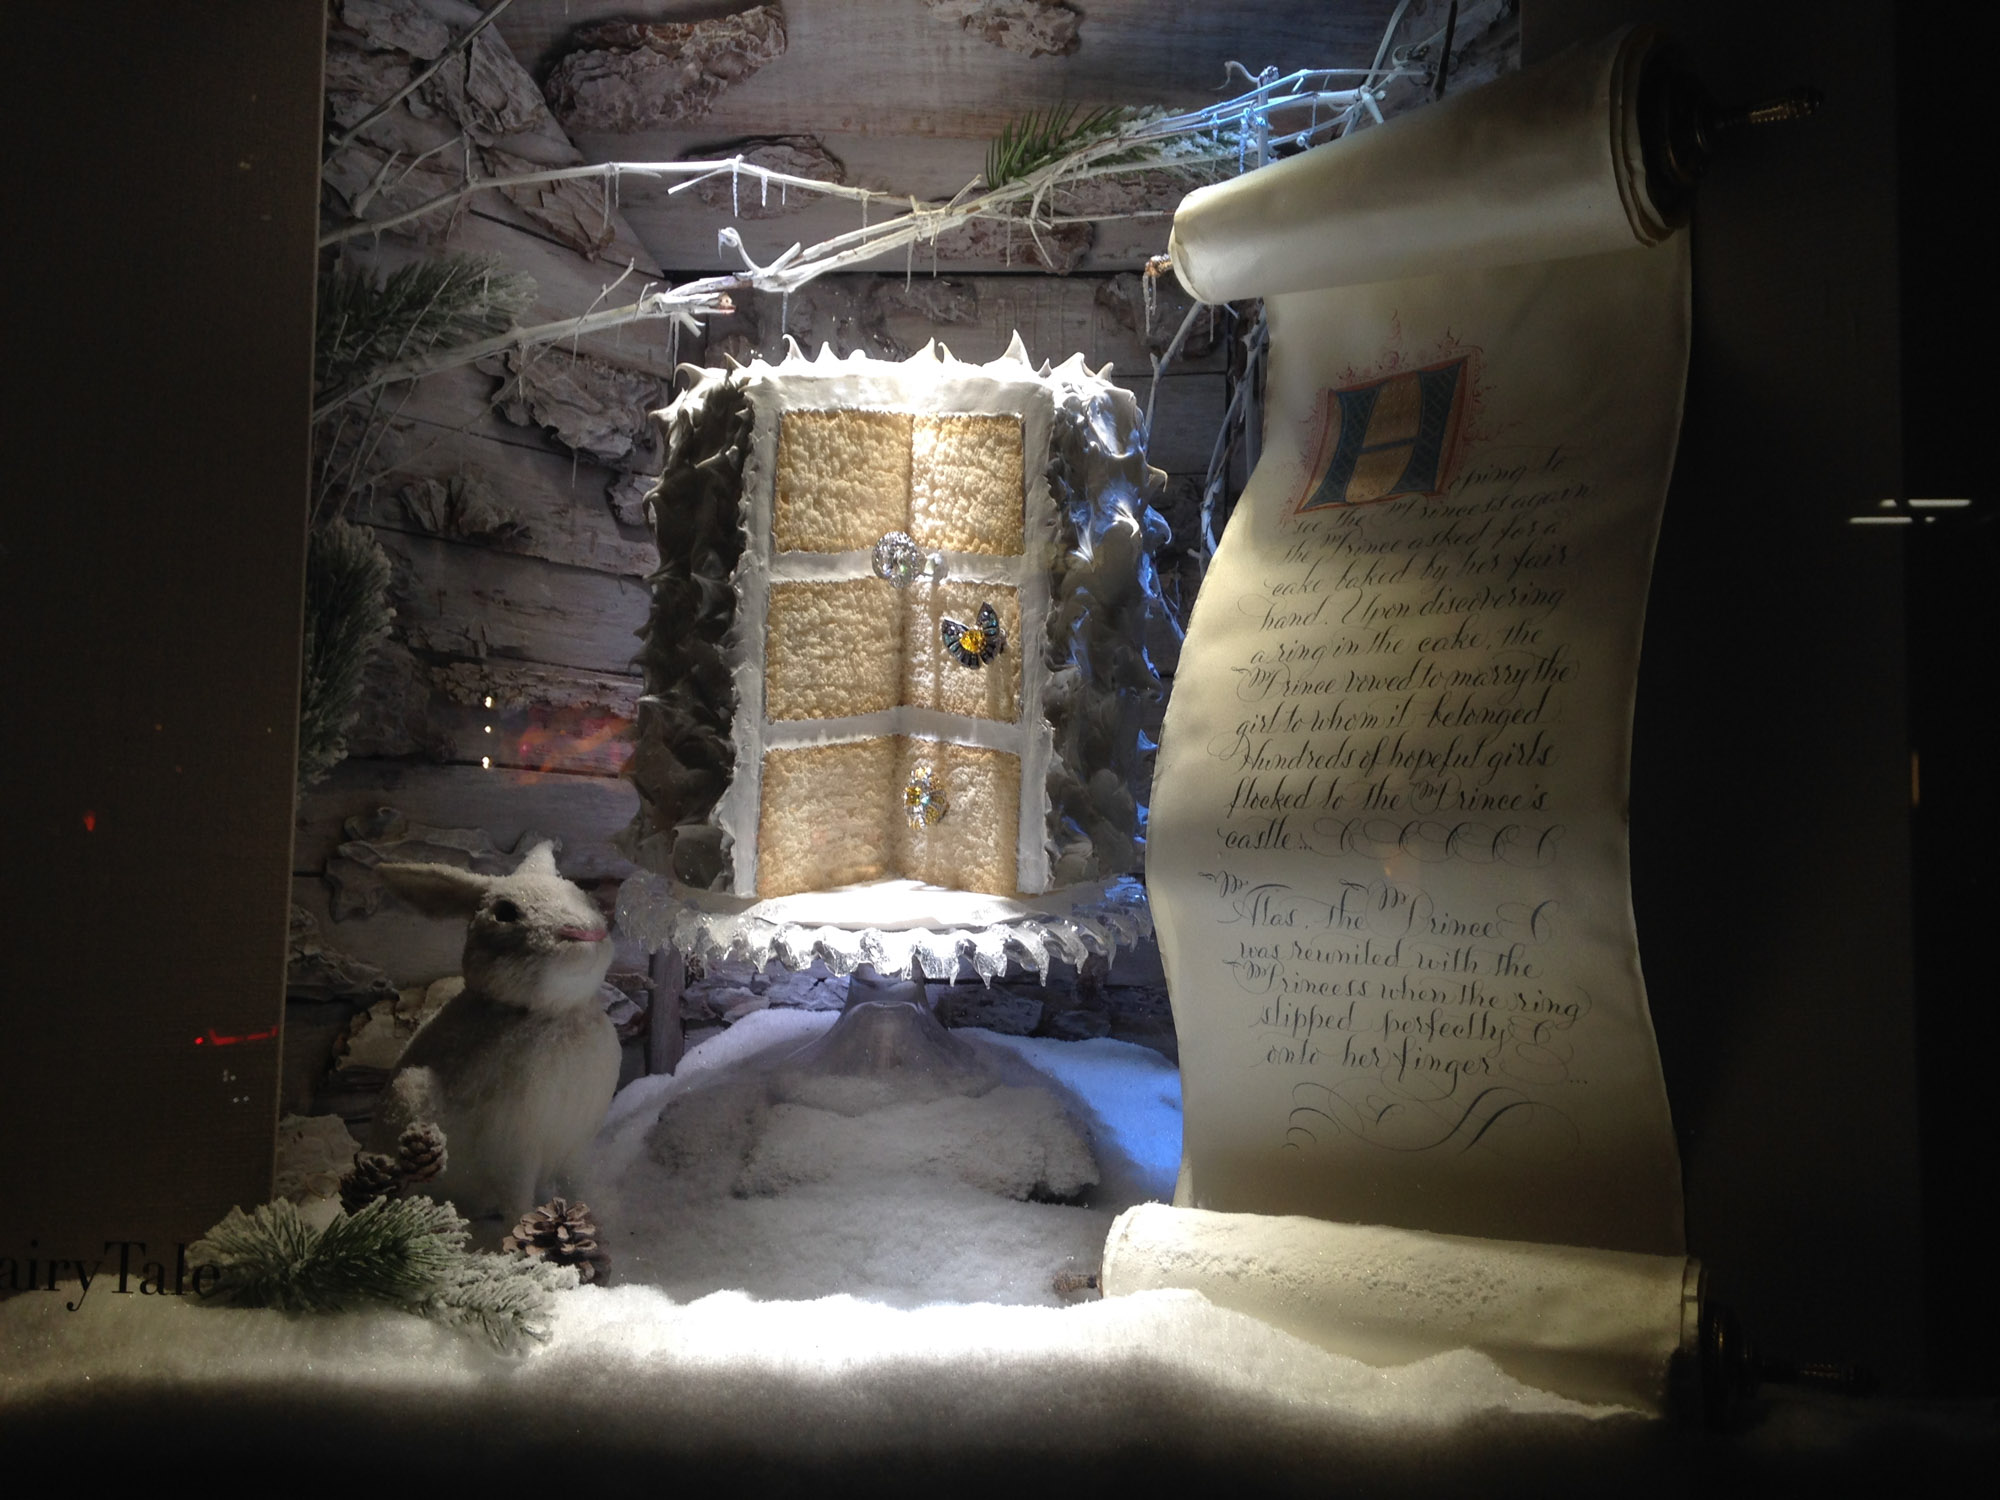 Hoping to
see the Princess again
the Prince asked for a
cake baked by her fair
hand. Upon discovering
a ring in the cake, the
Prince vowed to marry the
girl to whom it belonged.
Hundreds of hopeful girls
flocked to the Prince's
castle...
Alas, the Prince
was reunited with the
Princess when the ring
slipped perfectly
onto her finger...
airyTale